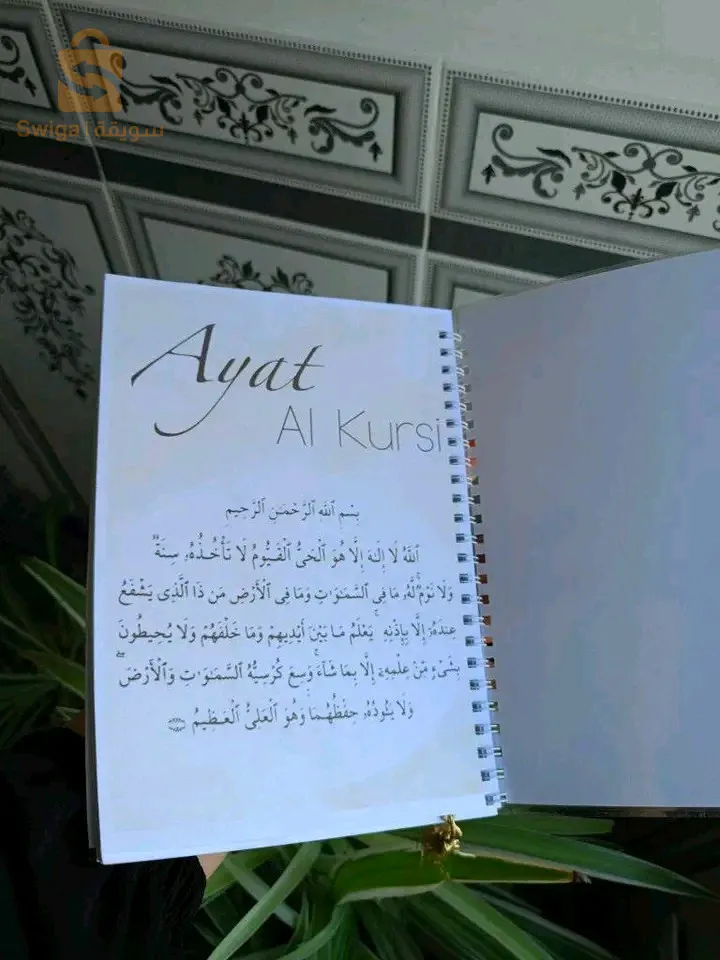 Swiqa | سويقة
Ayat
Al Kursi
بِسْمِ ٱللَّهِ ٱلرَّحْمَـٰنِ ٱلرَّحِيمِ
ٱللَّهُ لَا إِلَـٰهَ إِلَّا هُوَ ٱلْحَىُّ ٱلْقَيُّومُ لَا تَأْخُذُهُۥ سِنَةٌ
وَلَا نَوْمٌ ۚ لَّهُۥ مَا فِى ٱلسَّمَـٰوَٰتِ وَمَا فِى ٱلْأَرْضِ مَن ذَا ٱلَّذِى يَشْفَعُ
عِندَهُۥٓ إِلَّا بِإِذْنِهِۦ ۚ يَعْلَمُ مَا بَيْنَ أَيْدِيهِمْ وَمَا خَلْفَهُمْ وَلَا يُحِيطُونَ
بِشَىْءٍ مِّنْ عِلْمِهِۦٓ إِلَّا بِمَا شَآءَ ۚ وَسِعَ كُرْسِيُّهُ ٱلسَّمَـٰوَٰتِ وَٱلْأَرْضَ ۖ
وَلَا يَـُٔودُهُۥ حِفْظُهُمَا ۚ وَهُوَ ٱلْعَلِىُّ ٱلْعَظِيمُ